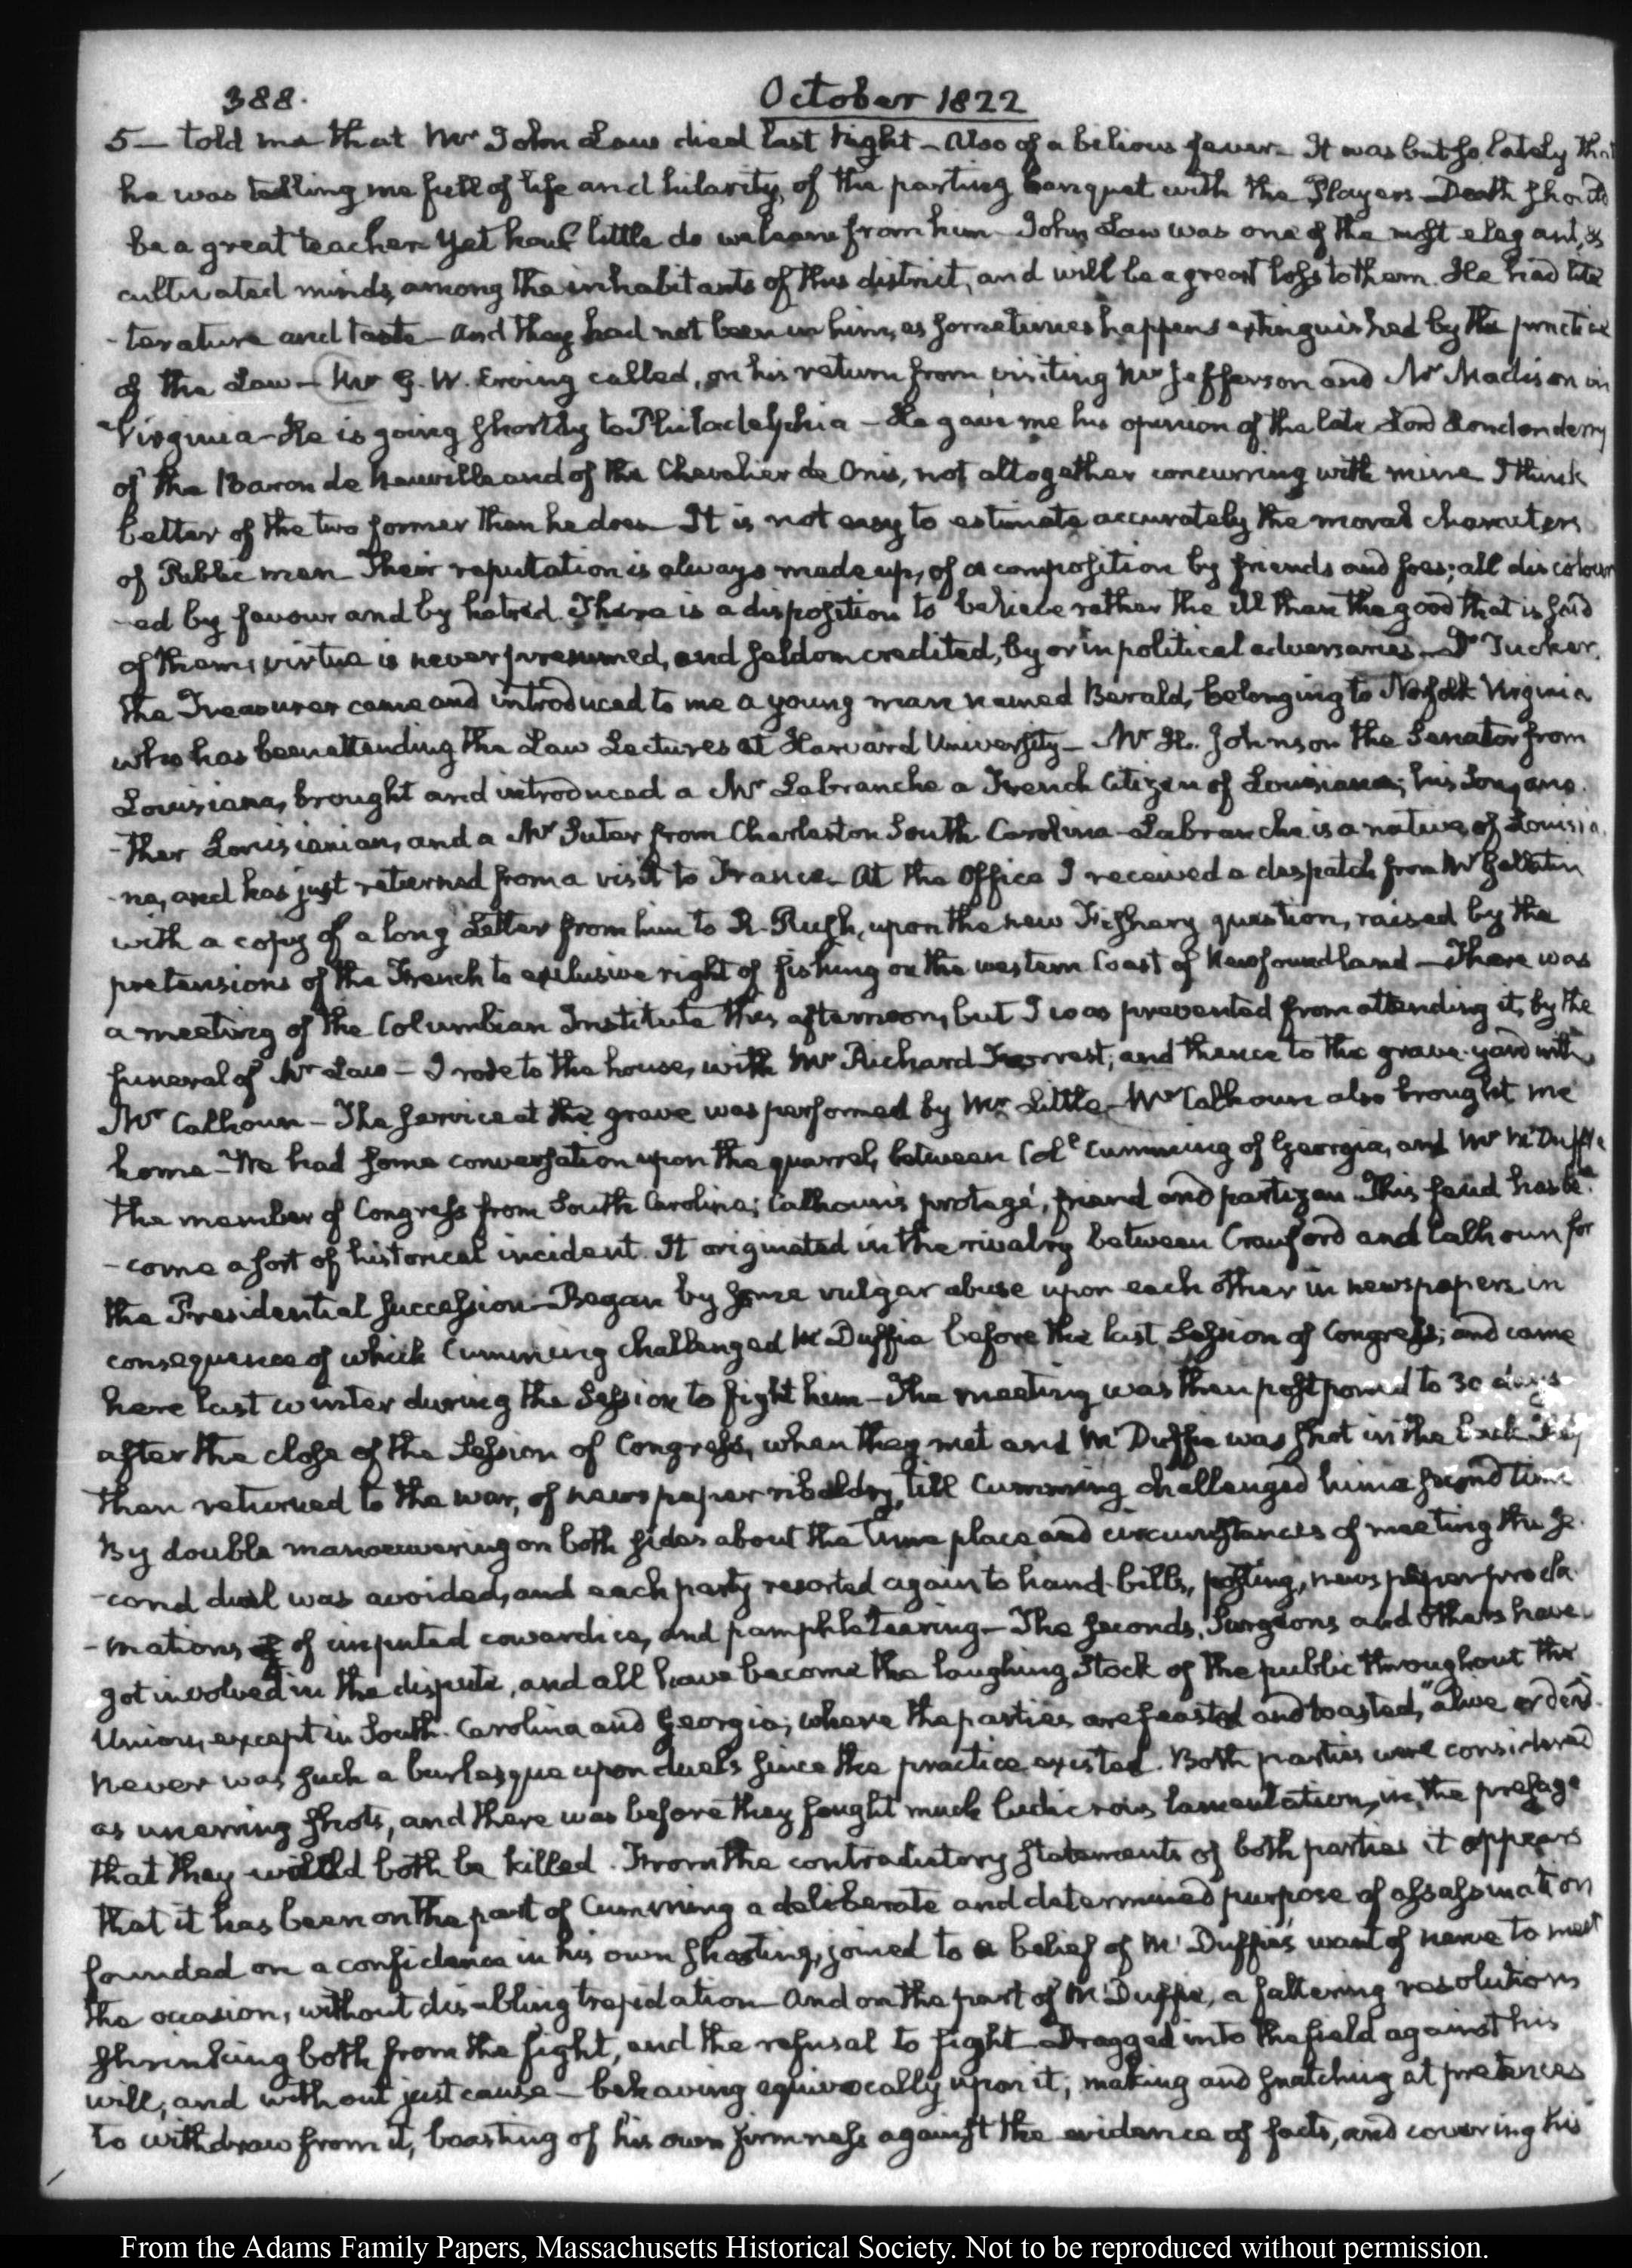 388.
October 1822
5— told me that Mr John Law died last Night — Also of a bilious fever — It was but so lately that
he was telling me full of life and hilarity, of the parting banquet with the Players — Death should
be a great teacher Yet how little do we learn from him — John Law was one of the most elegant, &
cultivated minds, among the inhabitants of this district, and will be a great loss to them. He had lite
-terature and taste — And they had not been in him, as sometimes happens extinguished by the practice
of the Law — Mr G. W. Erving called, on his return from visiting Mr Jefferson and Mr Madison in
Virginia — He is going shortly to Philadelphia — He gave me his opinion of the late Lord Londonderry
of the Baron de Neuville and of the Chevalier de Onis, not altogether concurring with mine I think
better of the two former than he does — It is not easy to estimate accurately the moral characters
of Public men — Their reputation is always made up, of a composition by friends and foes; all discolour
-ed by favour and by hatred. There is a disposition to believe rather the ill than the good that is said
of them; virtue is never presumed, and seldom credited, by or in political adversaries — Dr Tucker,
the Treasurer came and introduced to me a young man named Berald, belonging to Norfolk Virginia
who has been attending the Law Lectures at Harvard University — Mr H. Johnson the Senator from
Louisiana, brought and introduced a Mr Labranche a French Citizen of Louisiana; his Son, ano
-ther Louisianian, and a Mr Suter from Charleston South Carolina — Labranche is a native of Louisia
-na, and has just returned from a visit to France — At the Office I received a despatch from Mr Gallatin
with a copy of a long Letter from him to R. Rush, upon the new Fishery question, raised by the
pretensions of the French to exclusive right of fishing on the western Coast of Newfoundland — There was
a meeting of the Columbian Institute this afternoon, but I was prevented from attending it, by the
funeral of Mr Law — I rode to the house, with Mr Richard Forrest, and thence to the grave-yard with
Mr Calhoun — The service at the grave was performed by Mr Little — Mr Calhoun also brought me
home — We had some conversation upon the quarrel, between Cole Cumming of Georgia, and Mr McDuffie
the member of Congress from South Carolina; Calhoun's protegé, friend and partizan. This feud has be
-come a sort of historical incident. It originated in the rivalry between Crawford and Calhoun for
the Presidential succession — Began by some vulgar abuse upon each other in newspapers, in
consequence of which Cumming challenged McDuffie before the last Session of Congress; and came
here last winter during the Session to fight him — The meeting was then postponed to 30 days
after the close of the Session of Congress, when they met and McDuffie was shot in the back They
then returned to the war, of newspaper ribaldry, till Cumming challenged him a second time
By double manoeuvering on both sides about the time place and circumstances of meeting this se
-cond duel was avoided, and each party resorted again to hand-bills, posting, newspaper procla
-mations of imputed cowardice, and pamphleteering — The seconds, Surgeons and others have
got involved in the dispute, and all have become the laughing Stock of the public throughout the
Union, except in South-Carolina and Georgia; where the parties are feasted and toasted, "alive or dead."
Never was such a burlesque upon duels since the practice existed. Both parties were considered
as unerring shots, and there was before they fought much ludicrous lamentation, in the presage
that they would both be killed. From the contradictory statements of both parties it appears
that it has been on the part of Cumming a deliberate and determined purpose of assassination
founded on a confidence in his own shooting, joined to a belief of McDuffie's want of nerve to meet
the occasion, without disabling trepidation — And on the part of McDuffie, a faltering resolution
shrinking both from the fight, and the refusal to fight — Dragged into the field against his
will, and without just cause — behaving equivocally upon it; making and snatching at pretences
to withdraw from it, boasting of his own firmness against the evidence of facts, and covering his
From the Adams Family Papers, Massachusetts Historical Society. Not to be reproduced without permission.